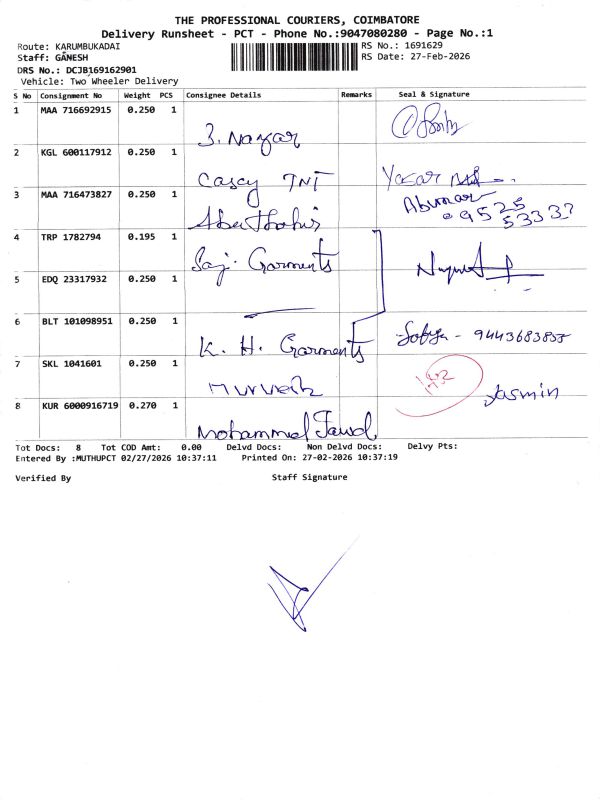 THE PROFESSIONAL COURIERS, COIMBATORE
Delivery Runsheet - PCT - Phone No.:9047080280 - Page No.:1
Route: KARUMBUKADAI
RS No.: 1691629
Staff: GANESH
RS Date: 27-Feb-2026
DRS No.: DCJB169162901
Vehicle: Two Wheeler Delivery
S No Consignment No Weight PCS Consignee Details Remarks Seal & Signature
1 MAA 716692915 0.250 1
2 KGL 600117912 0.250 1 Casey TNT
3 MAA 716473827 0.250 1
4 TRP 1782794 0.195 1 Saj. Garments
5 EDQ 23317932 0.250 1
6 BLT 101098951 0.250 1 K. H. Garments Sofya - 9443683855
7 SKL 1041601 0.250 1
8 KUR 6000916719 0.270 1 Mohammed Yasmin
Tot Docs: 8 Tot COD Amt: 0.00 Delvd Docs: Non Delvd Docs: Delvy Pts:
Entered By :MUTHUPCT 02/27/2026 10:37:11 Printed On: 27-02-2026 10:37:19
Verified By Staff Signature